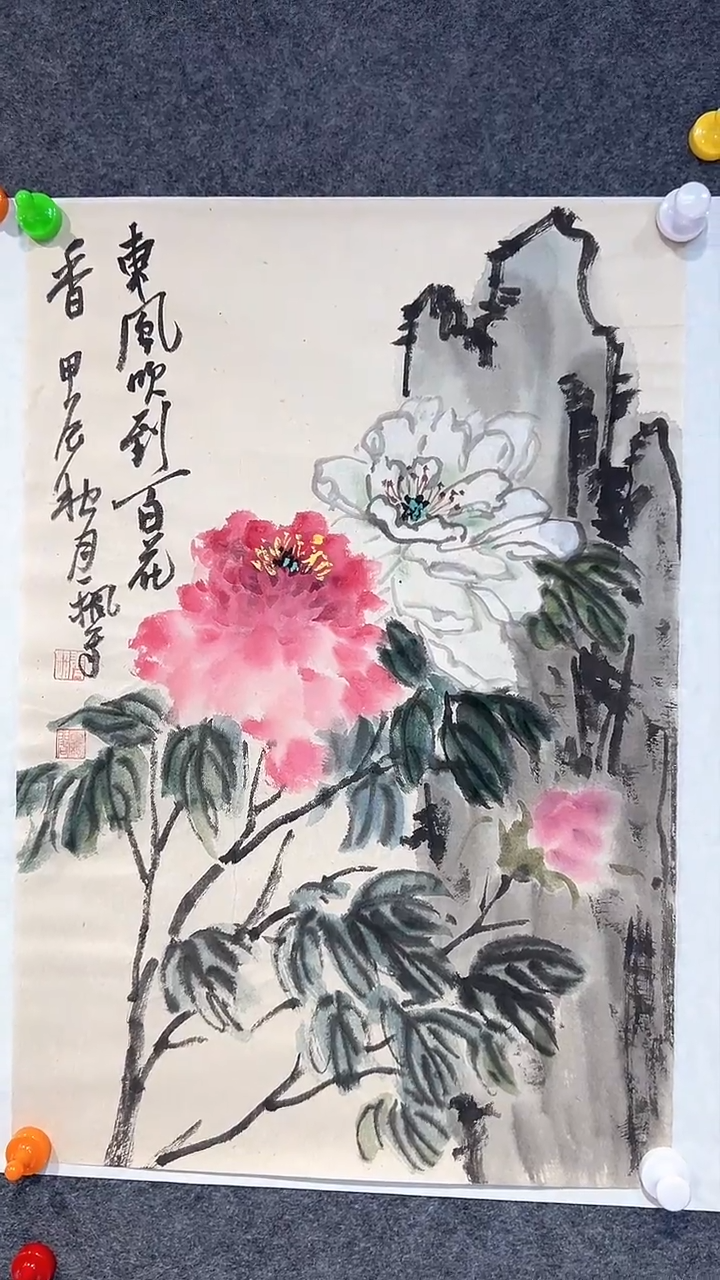 東風吹到百花
香 甲辰秋月楓